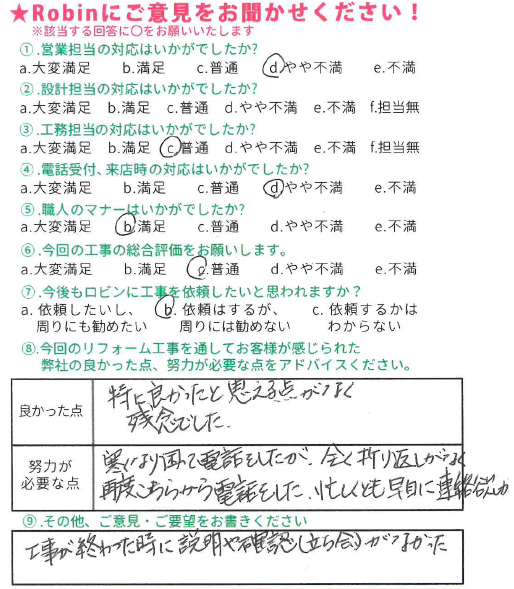 ★Robinにご意見をお聞かせください！
※該当する回答に〇をお願いいたします
①.営業担当の対応はいかがでしたか?
a.大変満足 b.満足 c.普通 d.やや不満 e.不満
②.設計担当の対応はいかがでしたか?
a.大変満足 b.満足 c.普通 d.やや不満 e.不満 f.担当無
③.工務担当の対応はいかがでしたか?
a.大変満足 b.満足 c.普通 d.やや不満 e.不満 f.担当無
④.電話受付、来店時の対応はいかがでしたか?
a.大変満足 b.満足 c.普通 d.やや不満 e.不満
⑤.職人のマナーはいかがでしたか?
a.大変満足 b.満足 c.普通 d.やや不満 e.不満
⑥.今回の工事の総合評価をお願いします。
a.大変満足 b.満足 c.普通 d.やや不満 e.不満
⑦.今後もロビンに工事を依頼したいと思われますか？
a. 依頼したいし、 b. 依頼はするが、 c. 依頼するかは
周りにも勧めたい 周りには勧めない わからない
⑧.今回のリフォーム工事を通してお客様が感じられた
弊社の良かった点、努力が必要な点をアドバイスください。
良かった点
特に良かったと思える点がなく
残念でした.
努力が
必要な点
になり困って電話をしたが、全く折り返しがなく
再度こちらから電話をした.忙しくとも早目に連絡
⑨.その他、ご意見・ご要望をお書きください
工事が終わった時に説明や確認(立ち会)がなかった